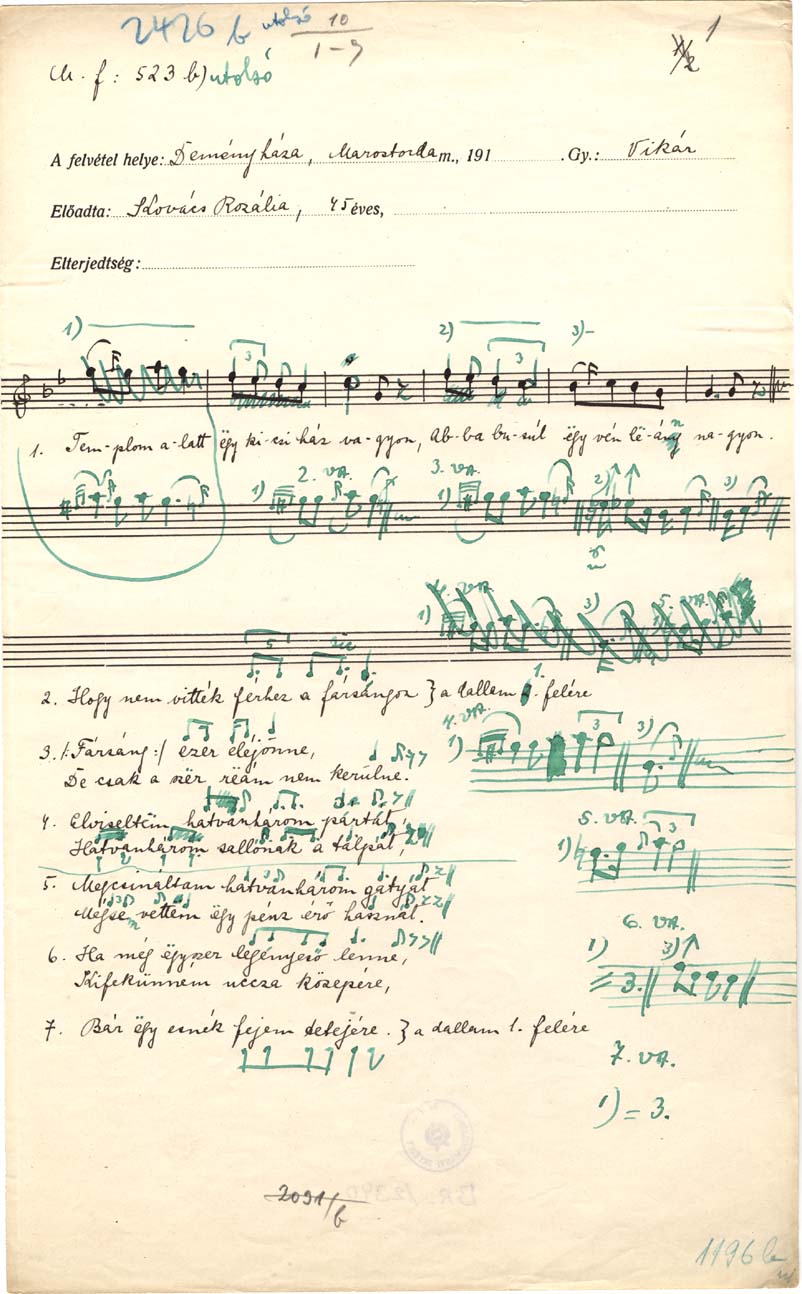 2426 b utolsó 10
1-9
1
1/2
M. f: 523 b) utolsó
A felvétel helye: Deményháza, Marostorda m., 191 . Gy.: Vikár
Előadta: Kovács Rozália, 45 éves,
Elterjedtség:
1) 2) 3)
3 3
1. Tem-plom a-latt ëgy ki-csi ház va-gyon, Ab-ba bu-súl ëgy vén lë-ány na-gyon.
2. VA. 3. VA.
1) 1) 2) 3)
4. VA. 5. VA.
1) 3)
5
2. Hogy nem vitték férhez a fársángon } a dallam 1. felére
4. VA.
3. /:Fársáng:/ ezer eléjönne,
1) 3 3)
De csak a szër rëám nem kerülne.
4. Elviseltem hatvanhárom pártát,
5. VA.
Hatvanhárom sallónak a tálpát,
1) 3
5. Megcsináltam hatvanhárom gátyát
3
Mégse vettem ëgy pénz érő hasznát.
6. VA.
6. Ha még ëgyszer legényeső lenne,
1) 3)
Kifekünném uccza közepére,
= 3.
7. Bár ëgy esnék fejem tetejére. } a dallam 1. felére
7. VA.
1) = 3.
2091/b
1196 b